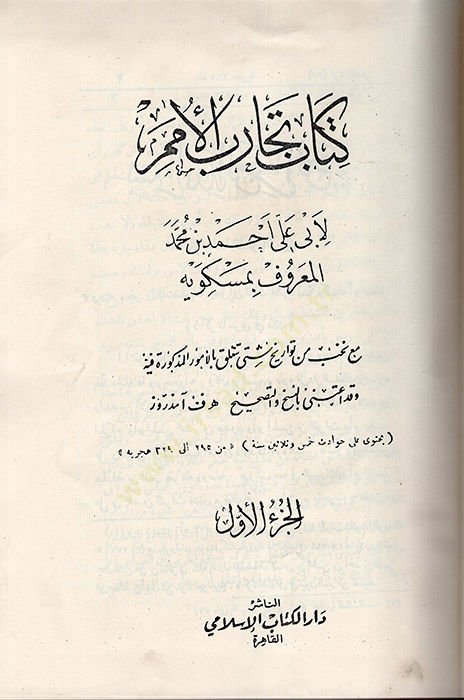 كتاب تجارب الأمم
لأبي علي احمد بن محمد
المعروف بمسكويه
مع نخب من تواريخ شتى تتعلق بالأمور المذكورة فيه
وقد اعتنى بالنسخ والتصحيح هـ. ف آمدروز
( يحتوى على حوادث خمس وثلاثين سنة ) « من ٢٩٥ الى ٣٢٩ هجرية »
الجزء الأول
الناشر
دار الكتاب الإسلامي
القاهرة